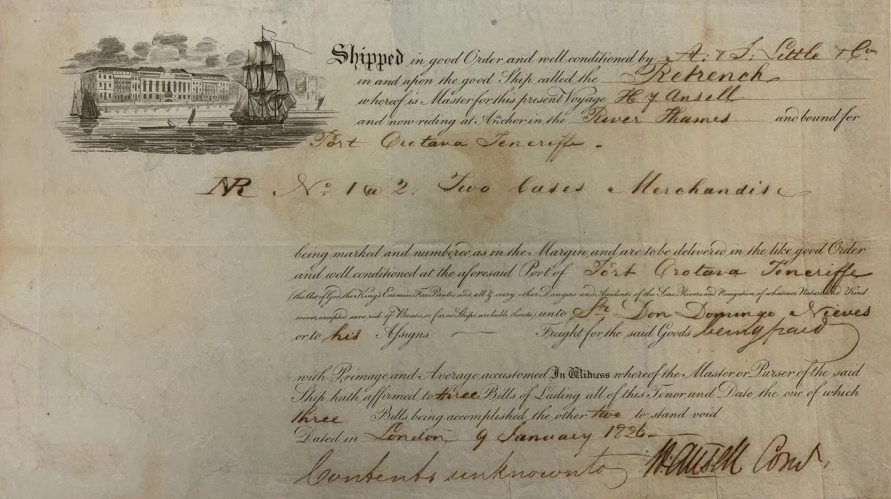 Shipped in good Order and well conditioned by A: & J: Little & Co
in and upon the good Ship called the Retrench
whereof is Master for this present Voyage H Y Ansell
and now riding at Anchor in the River Thames and bound for
Port Orotava Teneriffe -
NR No 1 @ 2. Two Cases Merchandise
being marked and numbered as in the Margin and are to be delivered in the like good Order
and well conditioned at the aforesaid Port of Port Orotava Teneriffe
(the Act of God the King's Enemies Fire Pirates and all & every other Dangers and Accidents of the Seas Rivers and Navigation of whatever Nature and Kind
soever excepted save risk of Boats, so far as Ships are liable thereto) unto Sr. Don Domingo Nieves
or to his Assigns Freight for the said Goods being paid
with Primage and Average accustomed In Witness whereof the Master or Purser of the said
Ship hath affirmed to three Bills of Lading all of this Tenor and Date the one of which
three Bills being accomplished the other two to stand void
Dated in London 9 January 1826-
Contents unknown to Ansell